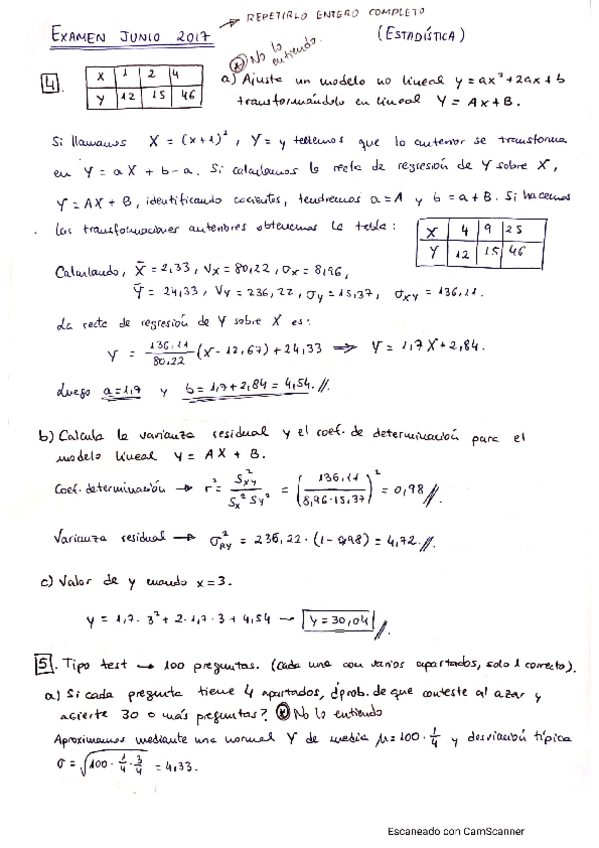 → REPETIRLO ENTERO COMPLETO
EXAMEN JUNIO 2017 (ESTADÍSTICA)
* No lo entiendo.
4. X 1 2 4
Y 12 15 46
a) Ajuste un modelo no lineal y = ax² + 2ax + b
transformándolo en lineal Y = Ax + B.
Si llamamos X = (x+1)², Y = y tenemos que lo anterior se transforma
en Y = aX + b - a. Si calculamos la recta de regresión de Y sobre X,
Y = AX + B, identificando cocientes, tendremos a = A y b = a + B. Si hacemos
las transformaciones anteriores obtenemos la tabla:
X 4 9 25
Y 12 15 46
Calculando, X̄ = 2,33, Vx = 80,22, σx = 8,96,
Ȳ = 24,33, Vy = 236,22, σy = 15,37, σxy = 136,11.
La recta de regresión de Y sobre X es:
Y = 136,11/80,22 (X - 12,67) + 24,33 ⟹ Y = 1,7X + 2,84.
Luego a = 1,7 y b = 1,7 + 2,84 = 4,54. //.
b) Calcula la varianza residual y el coef. de determinación para el
modelo lineal Y = AX + B.
Coef. determinación → r² = S²xy / Sx² Sy² = (136,11 / 8,96·15,37)² = 0,98 //.
Varianza residual → σ²RY = 236,22 · (1 - 0,98) = 4,72. //.
c) Valor de y cuando x = 3.
y = 1,7 · 3² + 2 · 1,7 · 3 + 4,54 → y = 30,04 //.
5. Tipo test → 100 preguntas. (cada una con varios apartados, solo 1 correcto).
a) Si cada pregunta tiene 4 apartados, ¿prob. de que conteste al azar y
acierte 30 o más preguntas? * No lo entiendo
Aproximamos mediante una normal Y de media μ = 100 · 1/4 y desviación típica
σ = √(100 · 1/4 · 3/4) = 4,33.
Escaneado con CamScanner